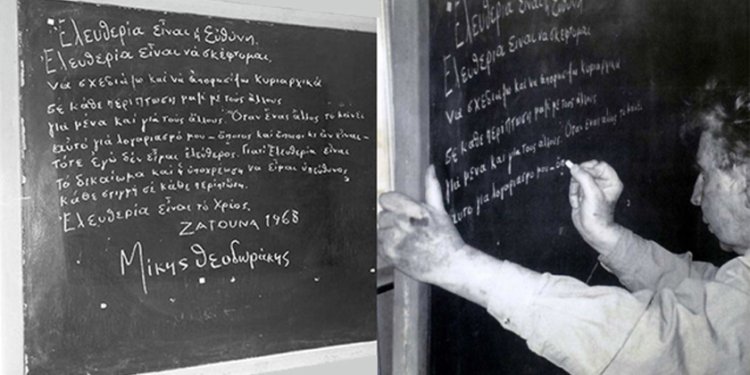 Ἐλευθερία εἶναι ἡ Εὐθύνη.
Ἐλευθερία εἶναι νά σκέφτομαι,
νά σχεδιάζω καί νά ἀποφασίζω κυριαρχικά
σέ κάθε περίπτωση μαζί μέ τούς ἄλλους
γιά μένα καί γιά τούς ἄλλους. Ὅταν ἕνας ἄλλος τό κάνει
αὐτό γιά λογαριασμό μου – ὅποιος καί κι ἄν εἶναι –
τότε ἐγώ δέν εἶμαι ἐλεύθερος. Γιατί Ἐλευθερία εἶναι
τό δικαίωμα καί ἡ ὑποχρέωση νά εἶμαι ὑπεύθυνος
κάθε στιγμή σέ κάθε περίπτωση.
Ἐλευθερία εἶναι τό Χρέος.
ΖΑΤΟΥΝΑ 1968
Μίκης Θεοδωράκης
Ἐλευθερία εἶναι ἡ Εὐθύνη
Ἐλευθερία εἶναι νά σκέφτομαι
νά σχεδιάζω καί νά ἀποφασίζω κυριαρχικά
σέ κάθε περίπτωση μαζί μέ τούς ἄλλους
γιά μένα καί γιά τούς ἄλλους. Ὅταν ἕνας ἄλλος τό κάνει
αὐτό γιά λογαριασμό μου –